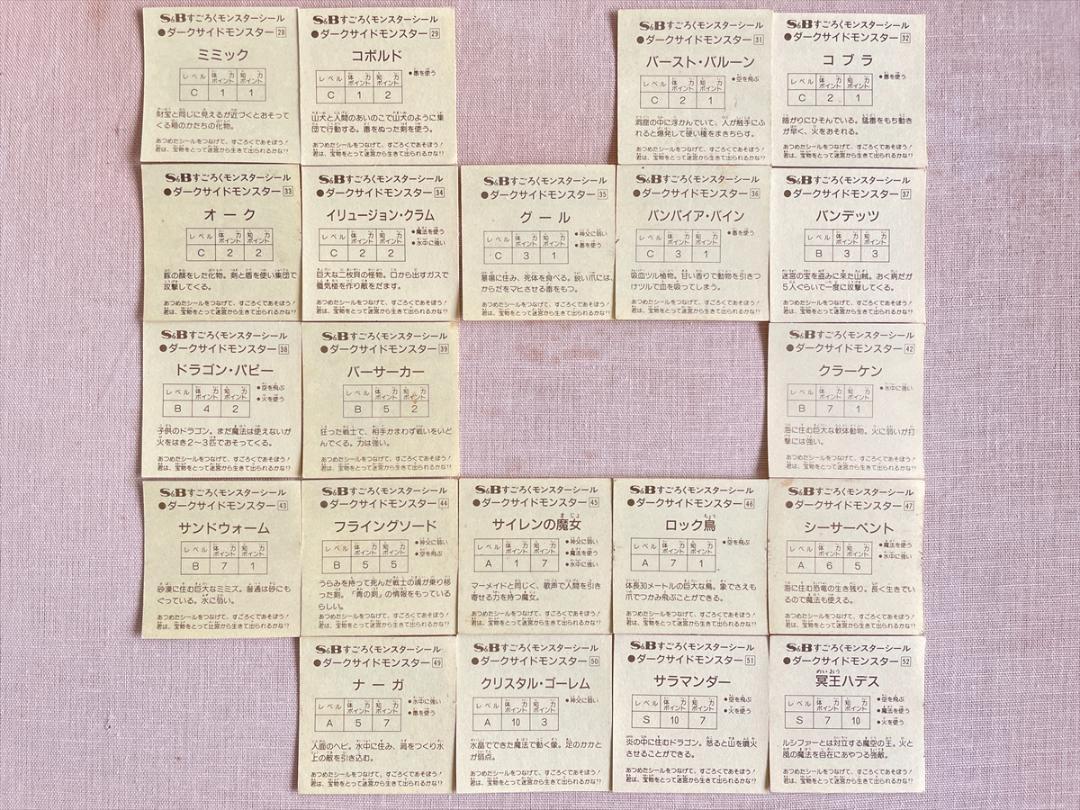 S&Bすごろくモンスターシール
●ダークサイドモンスター 28
ミミック
レベル 体力ポイント 知力ポイント
C 1 1
財宝と同じに見えるが近づくとおそって
くる箱のかたちの化物。
あつめたシールをつなげて、すごろくであそぼう!
君は、宝物をとって迷宮から生きて出られるかな!?
S&Bすごろくモンスターシール
●ダークサイドモンスター 29
コボルド
レベル 体力ポイント 知力ポイント
●毒を使う
C 1 2
山犬と人間のあいのこで山犬のように集
団で行動する。毒をぬった剣を使う。
あつめたシールをつなげて、すごろくであそぼう!
君は、宝物をとって迷宮から生きて出られるかな!?
S&Bすごろくモンスターシール
●ダークサイドモンスター 31
バースト・バルーン
レベル 体力ポイント 知力ポイント
●空を飛ぶ
C 2 1
洞窟の中に浮かんでいて、人が触手にふ
れると爆発して使い種をまきちらす。
あつめたシールをつなげて、すごろくであそぼう!
君は、宝物をとって迷宮から生きて出られるかな!?
S&Bすごろくモンスターシール
●ダークサイドモンスター 32
コブラ
レベル 体力ポイント 知力ポイント
●毒を使う
C 2 1
陰がりにひそんでいる。猛毒をもち動き
が早く、火をおそれる。
あつめたシールをつなげて、すごろくであそぼう!
君は、宝物をとって迷宮から生きて出られるかな!?
S&Bすごろくモンスターシール
●ダークサイドモンスター 33
オーク
レベル 体力ポイント 知力ポイント
C 2 2
豚の顔をした化物。剣と盾を使い集団で
攻撃してくる。
あつめたシールをつなげて、すごろくであそぼう!
君は、宝物をとって迷宮から生きて出られるかな!?
S&Bすごろくモンスターシール
●ダークサイドモンスター 34
イリュージョン・クラム
レベル 体力ポイント 知力ポイント
●魔法を使う
●水中に強い
C 2 2
巨大な二枚貝の怪物。口から出すガスで
蜃気楼を作り敵をだます。
あつめたシールをつなげて、すごろくであそぼう!
君は、宝物をとって迷宮から生きて出られるかな!?
S&Bすごろくモンスターシール
●ダークサイドモンスター 35
グール
レベル 体力ポイント 知力ポイント
●神父に弱い
●毒を使う
C 3 1
墓場に住み、死体を食べる。鋭い爪には、
からだをマヒさせる毒をもつ。
あつめたシールをつなげて、すごろくであそぼう!
君は、宝物をとって迷宮から生きて出られるかな!?
S&Bすごろくモンスターシール
●ダークサイドモンスター 36
バンパイア・バイン
レベル 体力ポイント 知力ポイント
●毒を使う
C 3 1
吸血ツル植物。甘い香りで動物を引きつ
けツルで血を吸ってしまう。
あつめたシールをつなげて、すごろくであそぼう!
君は、宝物をとって迷宮から生きて出られるかな!?
S&Bすごろくモンスターシール
●ダークサイドモンスター 37
バンデッツ
レベル 体力ポイント 知力ポイント
B 3 3
迷宮の宝を盗みに来た山賊。おく病だが
5人ぐらいで一度に攻撃してくる。
あつめたシールをつなげて、すごろくであそぼう!
君は、宝物をとって迷宮から生きて出られるかな!?
S&Bすごろくモンスターシール
●ダークサイドモンスター 38
ドラゴン・パピー
レベル 体力ポイント 知力ポイント
●空を飛ぶ
●火を使う
B 4 2
子供のドラゴン。まだ魔法は使えないが
火をはき2〜3匹でおそってくる。
あつめたシールをつなげて、すごろくであそぼう!
君は、宝物をとって迷宮から生きて出られるかな!?
S&Bすごろくモンスターシール
●ダークサイドモンスター 39
バーサーカー
レベル 体力ポイント 知力ポイント
B 5 2
狂った戦士で、相手かまわず戦いをいど
んでくる。力は強い。
あつめたシールをつなげて、すごろくであそぼう!
君は、宝物をとって迷宮から生きて出られるかな!?
S&Bすごろくモンスターシール
●ダークサイドモンスター 42
クラーケン
レベル 体力ポイント 知力ポイント
●水中に強い
B 7 1
海に住む巨大な軟体動物。火に弱いが打
撃には強い。
あつめたシールをつなげて、すごろくであそぼう!
君は、宝物をとって迷宮から生きて出られるかな!?
S&Bすごろくモンスターシール
●ダークサイドモンスター 43
サンドウォーム
レベル 体力ポイント 知力ポイント
B 7 1
砂漠に住む巨大なミミズ。普通は砂にも
ぐっている。水に弱い。
あつめたシールをつなげて、すごろくであそぼう!
君は、宝物をとって迷宮から生きて出られるかな!?
S&Bすごろくモンスターシール
●ダークサイドモンスター 44
フライングソード
レベル 体力ポイント 知力ポイント
●神父に弱い
●空を飛ぶ
B 5 5
うらみを持って死んだ戦士の魂が乗り移
った剣。「青の剣」の情報をもっている
らしい。
あつめたシールをつなげて、すごろくであそぼう!
君は、宝物をとって迷宮から生きて出られるかな!?
S&Bすごろくモンスターシール
●ダークサイドモンスター 45
サイレンの魔女
レベル 体力ポイント 知力ポイント
●神父に弱い
●魔法を使う
●水中に強い
A 1 7
マーメイドと同じく、歌声で人間を引き
寄せる力を持つ魔女。
あつめたシールをつなげて、すごろくであそぼう!
君は、宝物をとって迷宮から生きて出られるかな!?
S&Bすごろくモンスターシール
●ダークサイドモンスター 46
ロック鳥
レベル 体力ポイント 知力ポイント
●空を飛ぶ
A 7 1
体長30メートルの巨大な鳥。象でさえも
爪でつかみ飛ぶことができる。
あつめたシールをつなげて、すごろくであそぼう!
君は、宝物をとって迷宮から生きて出られるかな!?
S&Bすごろくモンスターシール
●ダークサイドモンスター 47
シーサーペント
レベル 体力ポイント 知力ポイント
●魔法を使う
●水中に強い
A 6 5
海に住む恐竜の生き残り。長く生きてい
るので魔法も使える。
あつめたシールをつなげて、すごろくであそぼう!
君は、宝物をとって迷宮から生きて出られるかな!?
S&Bすごろくモンスターシール
●ダークサイドモンスター 49
ナーガ
レベル 体力ポイント 知力ポイント
●水中に強い
●毒を使う
A 5 7
人面のヘビ。水中に住み、渦をつくり水
上の敵を引き込む。
あつめたシールをつなげて、すごろくであそぼう!
君は、宝物をとって迷宮から生きて出られるかな!?
S&Bすごろくモンスターシール
●ダークサイドモンスター 50
クリスタル・ゴーレム
レベル 体力ポイント 知力ポイント
●神父に強い
A 10 3
水晶でできた魔法で動く像。足のかかと
が弱点。
あつめたシールをつなげて、すごろくであそぼう!
君は、宝物をとって迷宮から生きて出られるかな!?
S&Bすごろくモンスターシール
●ダークサイドモンスター 51
サラマンダー
レベル 体力ポイント 知力ポイント
●空を飛ぶ
●火を使う
S 10 7
炎の中に住むドラゴン。怒ると山を噴火
させることができる。
あつめたシールをつなげて、すごろくであそぼう!
君は、宝物をとって迷宮から生きて出られるかな!?
S&Bすごろくモンスターシール
●ダークサイドモンスター 52
冥王ハデス
レベル 体力ポイント 知力ポイント
●空を飛ぶ
●魔法を使う
●火を使う
S 7 10
ルシファーとは対立する魔空の王。火と
風の魔法を自在にあやつる強敵。
あつめたシールをつなげて、すごろくであそぼう!
君は、宝物をとって迷宮から生きて出られるかな!?